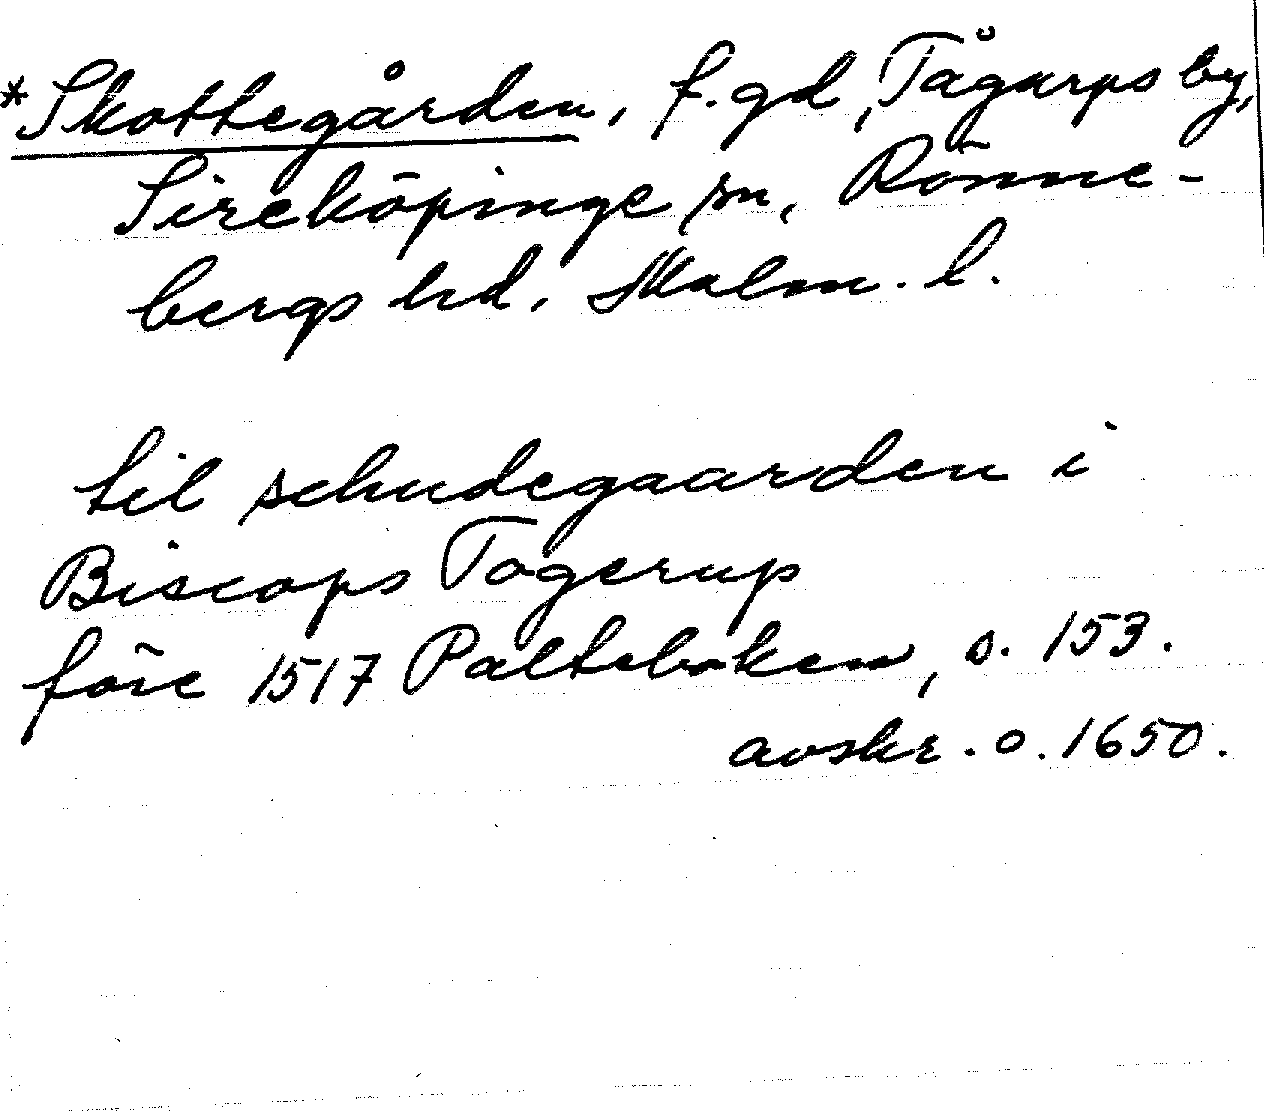 *Skottegården, f.gd, Tågarps by,
Sireköpinge sn, Rönne-
bergs hd, Malm. l.
til schudegaarden i
Biscops Togerup
före 1517 Palteboken, s. 153.
avskr. o. 1650.